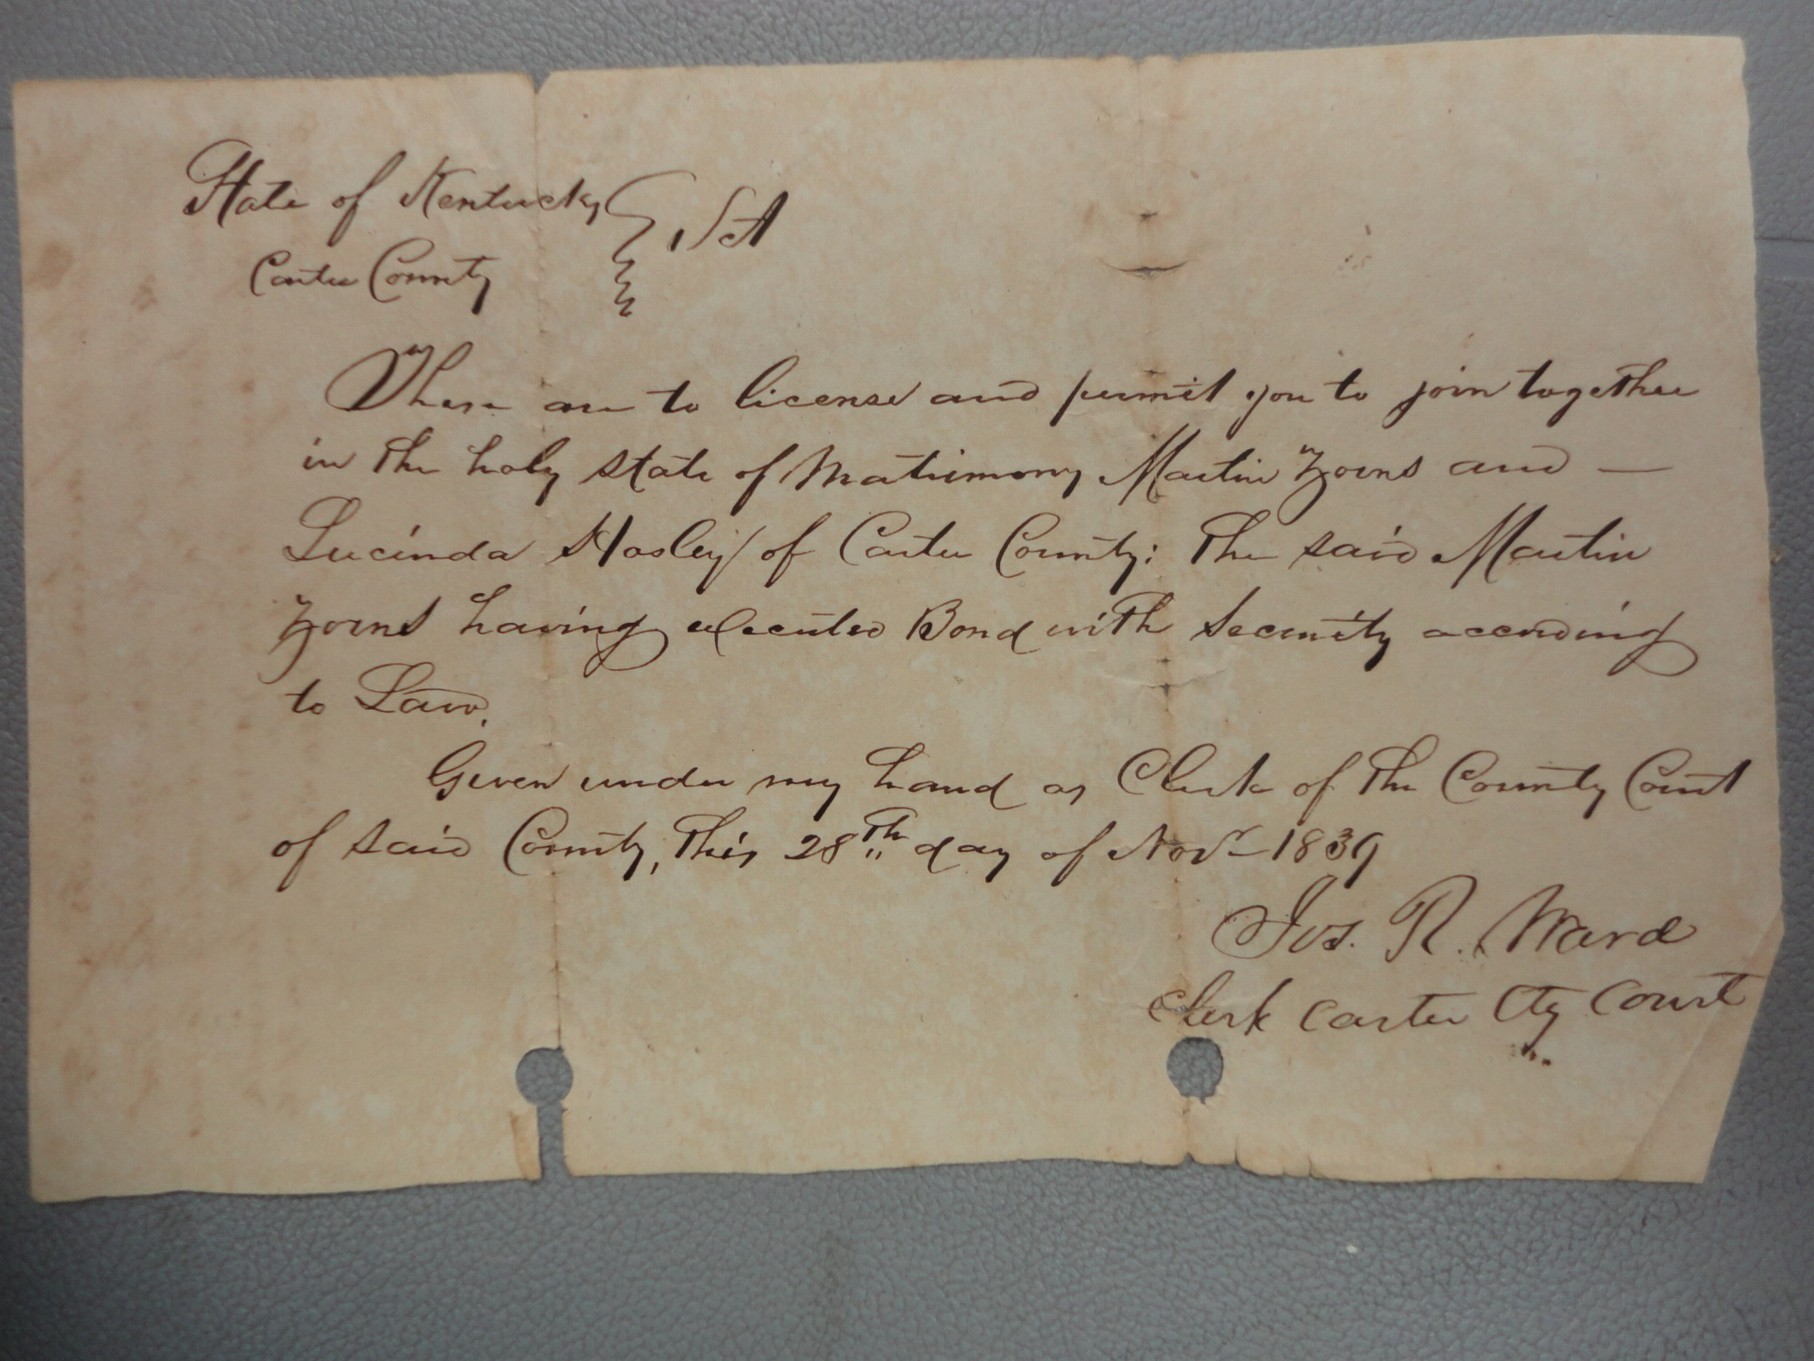 State of Kentucky } Sct
Carter County
These are to license and permit you to join together
in the holy state of Matrimony Martin Zorns and —
Lucinda Hosley of Carter County: The said Martin
Zorns having executed Bond with Security according
to Law.
Given under my hand as Clerk of the County Court
of said County, This 28th day of Novr 1839
Jos. R. Ward
Clerk Carter Cty Court